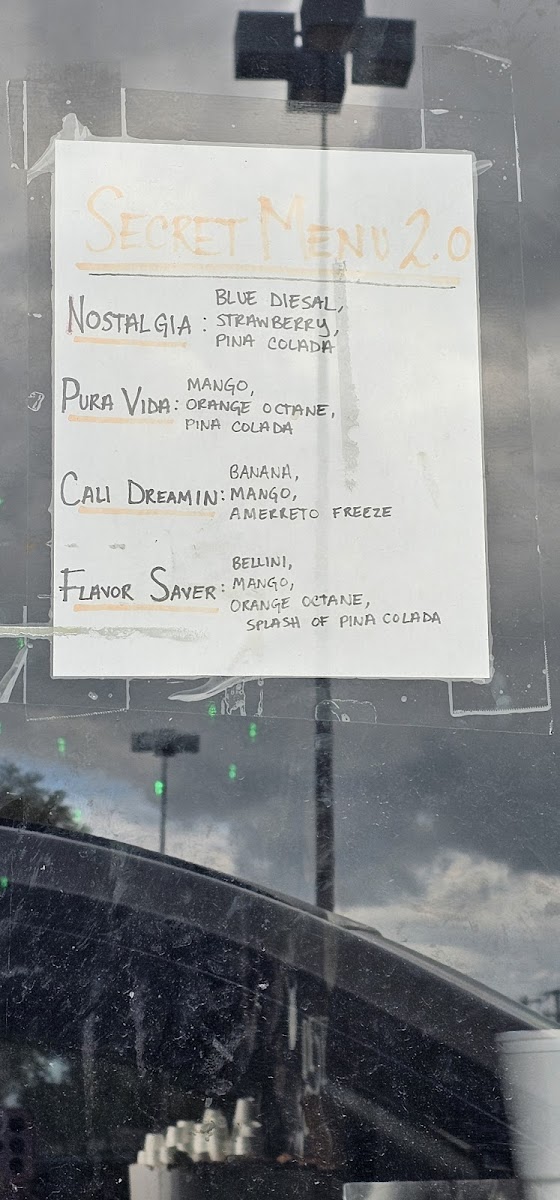 SECRET MENU 2.0
NOSTALGIA : BLUE DIESAL,
STRAWBERRY,
PINA COLADA
PURA VIDA: MANGO,
ORANGE OCTANE,
PINA COLADA
CALI DREAMIN: BANANA,
MANGO,
AMERRETO FREEZE
FLAVOR SAVER: BELLINI,
MANGO,
ORANGE OCTANE,
SPLASH OF PINA COLADA